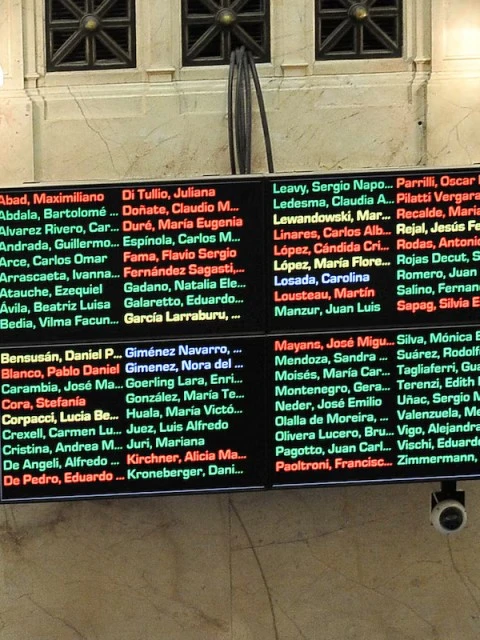 Abad, Maximiliano
Abdala, Bartolomé ...
Alvarez Rivero, Car...
Andrada, Guillermo...
Arce, Carlos Omar
Arrascaeta, Ivanna...
Atauche, Ezequiel
Ávila, Beatriz Luisa
Bedia, Vilma Facun...
Bensusán, Daniel P...
Blanco, Pablo Daniel
Carambia, José Ma...
Cora, Stefanía
Corpacci, Lucia Be...
Crexell, Carmen Lu...
Cristina, Andrea M...
De Angeli, Alfredo ...
De Pedro, Eduardo ...
Di Tullio, Juliana
Doñate, Claudio M...
Duré, María Eugenia
Espínola, Carlos M...
Fama, Flavio Sergio
Fernández Sagasti,...
Gadano, Natalia Ele...
Galaretto, Eduardo...
García Larraburu, ...
Giménez Navarro, ...
Gimenez, Nora del ...
Goerling Lara, Enri...
González, María Te...
Huala, María Victó...
Juez, Luis Alfredo
Juri, Mariana
Kirchner, Alicia Ma...
Kroneberger, Dani...
Leavy, Sergio Napo...
Ledesma, Claudia A...
Lewandowski, Mar...
Linares, Carlos Alb...
López, Cándida Cri...
López, María Flore...
Losada, Carolina
Lousteau, Martín
Manzur, Juan Luis
Mayans, José Migu...
Mendoza, Sandra ...
Moisés, María Car...
Montenegro, Gera...
Neder, José Emilio
Olalla de Moreira, ...
Olivera Lucero, Bru...
Pagotto, Juan Carl...
Paoltroni, Francisc...
Parrilli, Oscar
Pilatti Vergara
Recalde, Maria
Rejal, Jesús Fe
Rodas, Antonio
Rojas Decut, S
Romero, Juan
Salino, Fernan
Sapag, Silvia E
Silva, Mónica E
Suárez, Rodolf
Tagliaferri, Gu
Terenzi, Edith
Uñac, Sergio M
Valenzuela, Me
Vigo, Alejandra
Vischi, Eduard
Zimmermann,